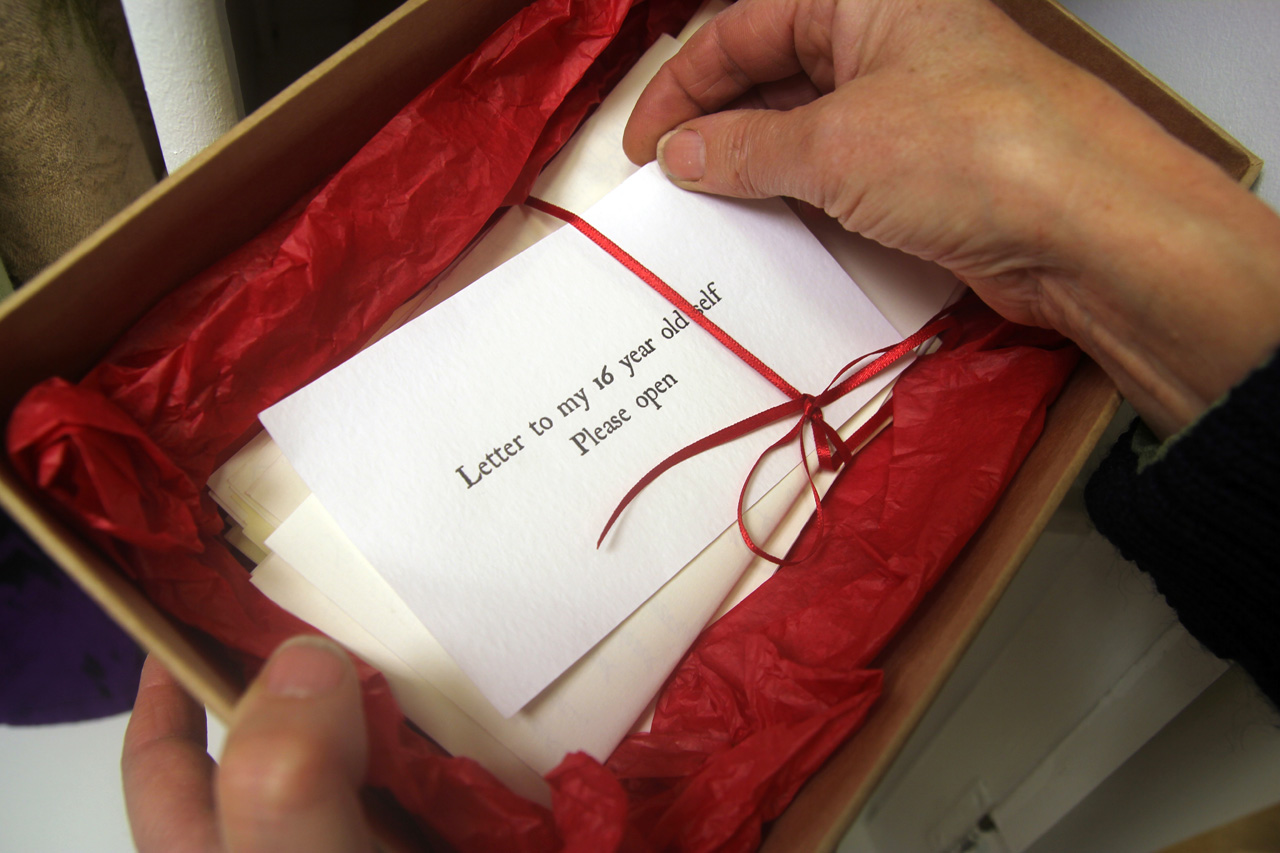 Letter to my 16 year old self
Please open